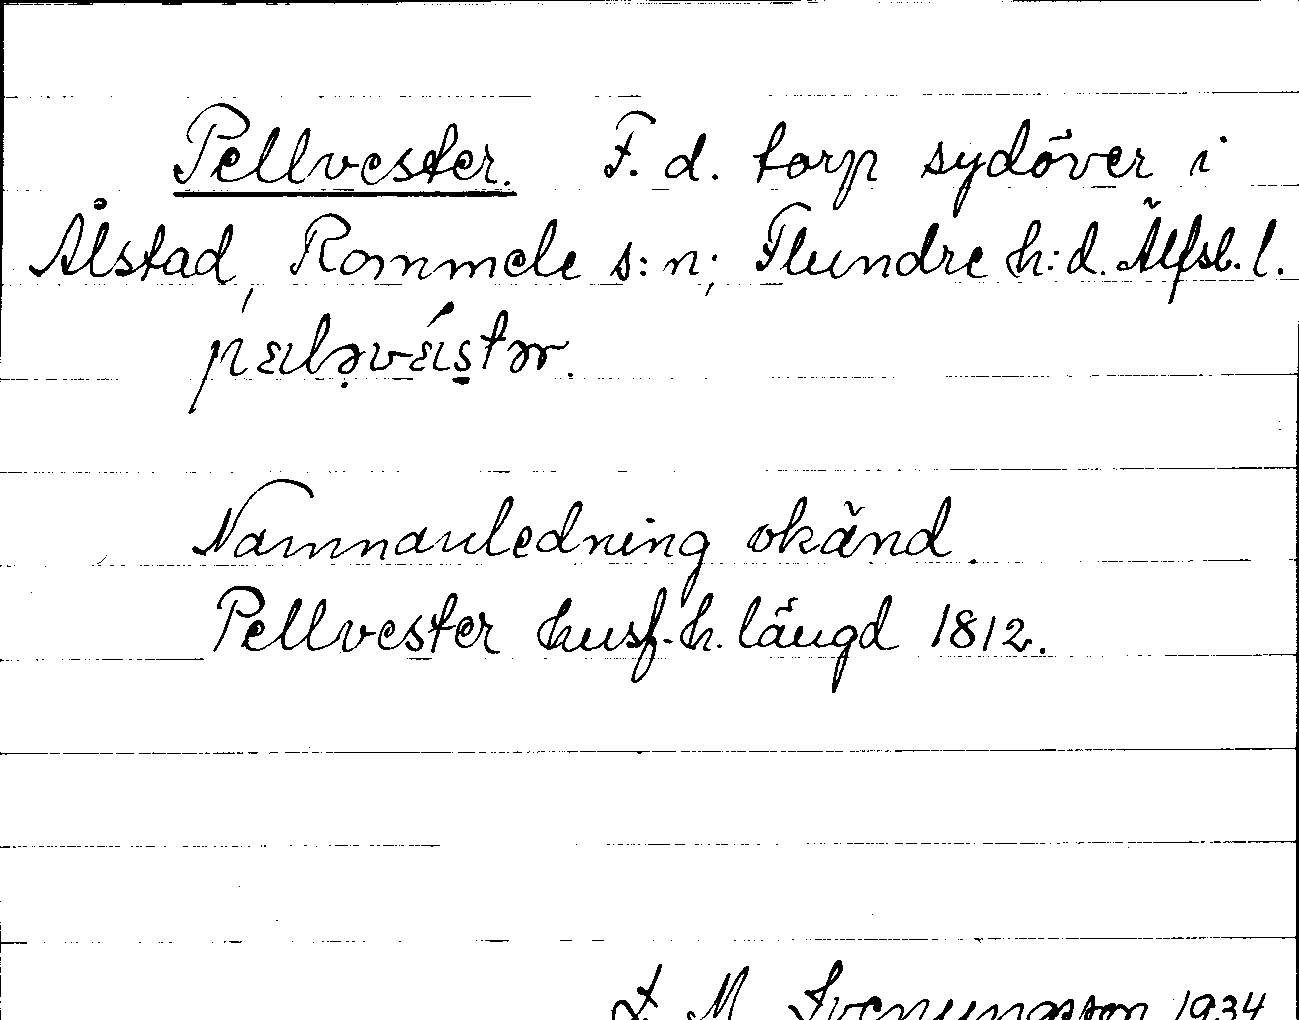 Pellvester. F. d. torp sydöver i
Ålstad, Rommele s:n; Flundre h:d. Älfsb. l.
Namnanledning okänd.
Pellvester husf.h. längd 1812.
M Svenungsson 1934